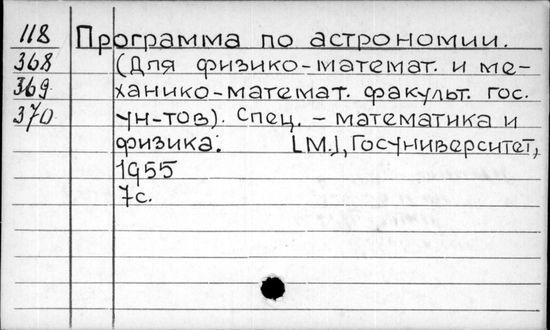 118 Программа по астрономии.
368 (Для физико-математ. и ме-
369 ханико-математ. факульт. гос.
370 ун-тов). Спец. – математика и
физика. [М.], Госуниверситет,
1955
7с.